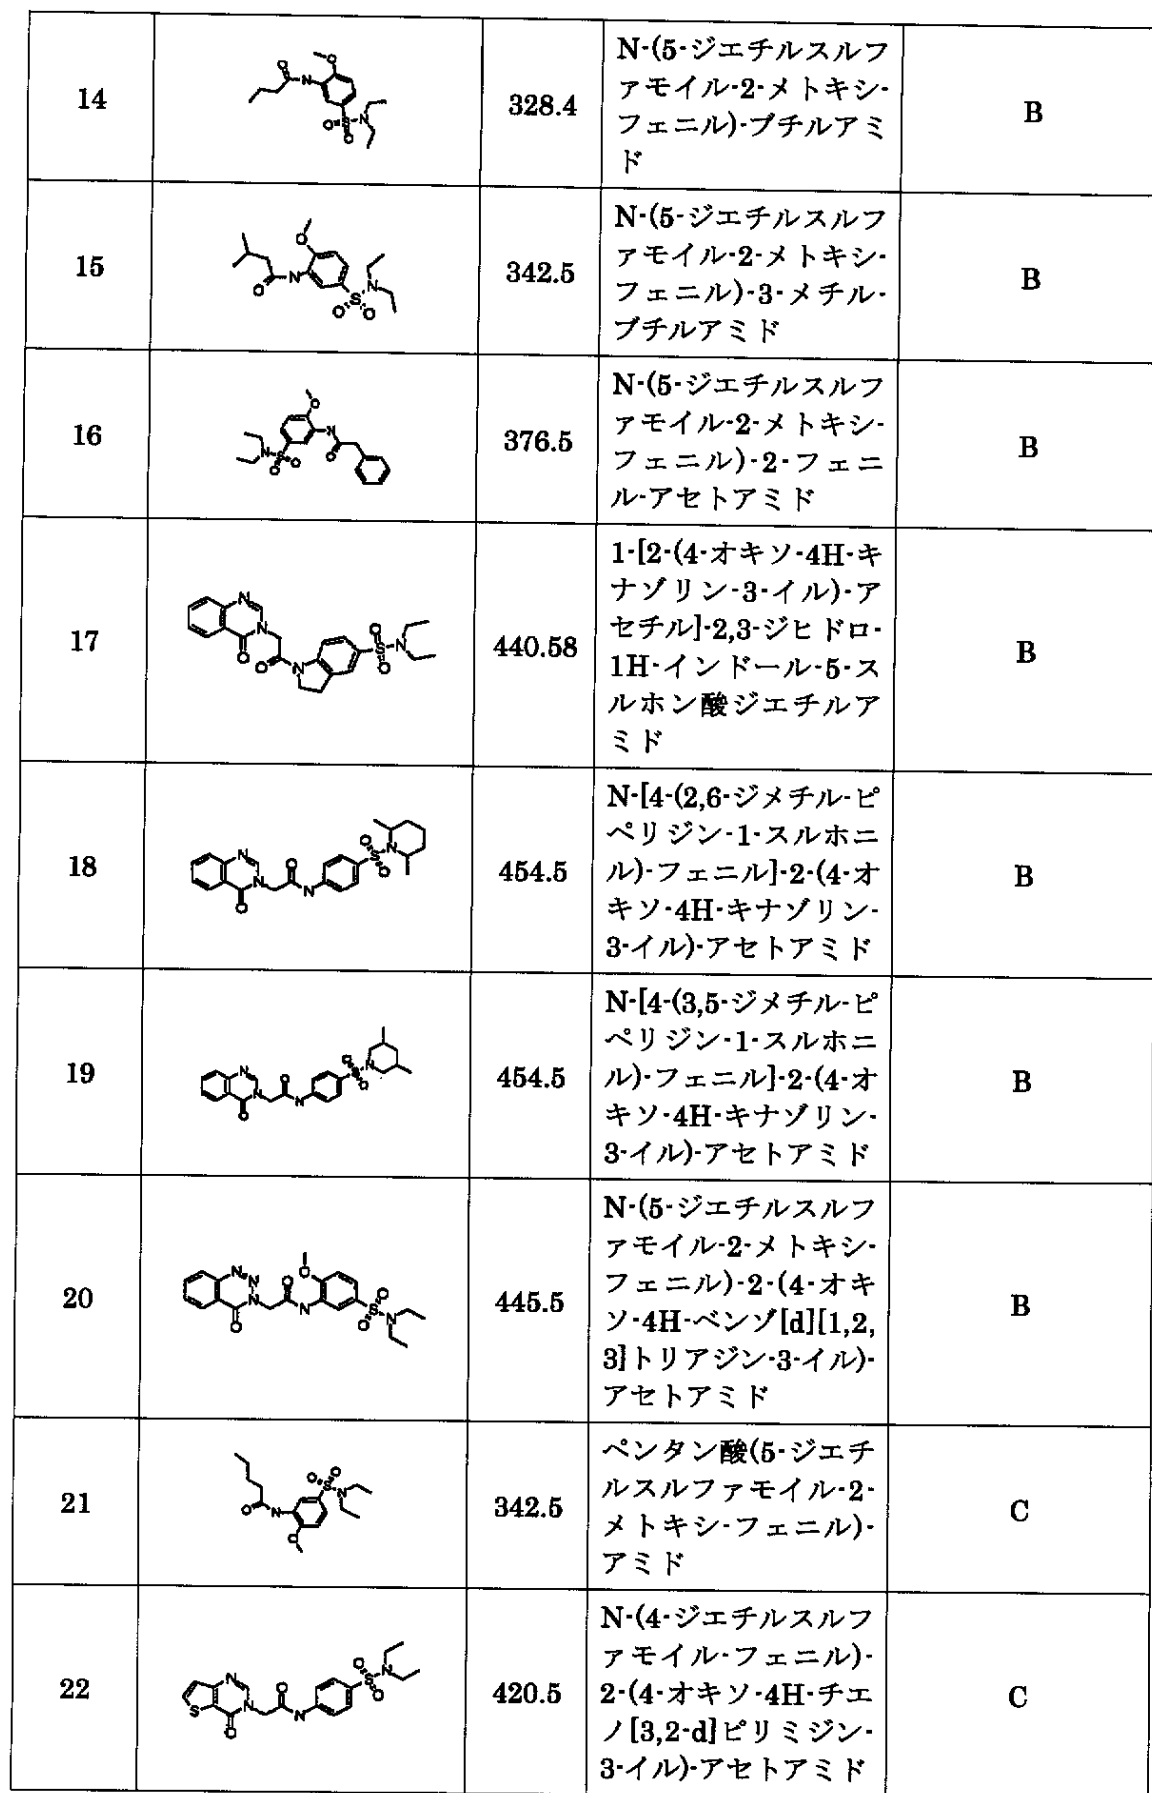 14
328.4
N-(5-ジエチルスルフ
ァモイル-2-メトキシ-
フェニル)-ブチルアミ
ド
B
15
342.5
N-(5-ジエチルスルフ
ァモイル-2-メトキシ-
フェニル)-3-メチル-
ブチルアミド
B
16
376.5
N-(5-ジエチルスルフ
ァモイル-2-メトキシ-
フェニル)-2-フェニ
ル-アセトアミド
B
17
440.58
1-[2-(4-オキソ-4H-キ
ナゾリン-3-イル)-ア
セチル]-2,3-ジヒドロ-
1H-インドール-5-ス
ルホン酸ジエチルア
ミド
B
18
454.5
N-[4-(2,6-ジメチル-ピ
ペリジン-1-スルホニ
ル)-フェニル]-2-(4-オ
キソ-4H-キナゾリン-
3-イル)-アセトアミド
B
19
454.5
N-[4-(3,5-ジメチル-ピ
ペリジン-1-スルホニ
ル)-フェニル]-2-(4-オ
キソ-4H-キナゾリン-
3-イル)-アセトアミド
B
20
445.5
N-(5-ジエチルスルフ
ァモイル-2-メトキシ-
フェニル)-2-(4-オキ
ソ-4H-ベンゾ[d][1,2,
3]トリアジン-3-イル)-
アセトアミド
B
21
342.5
ペンタン酸(5-ジエチ
ルスルファモイル-2-
メトキシ-フェニル)-
アミド
C
22
420.5
N-(4-ジエチルスルフ
ァモイル-フェニル)-
2-(4-オキソ-4H-チエ
ノ[3,2-d]ピリミジン-
3-イル)-アセトアミド
C